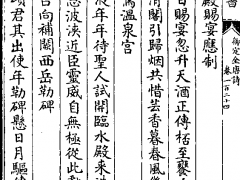 書
御定全唐詩
卷一百二十四
殿賜宴應制
日賜宴忽升天酒正傳桮至饔人
清闈引歸煙共惜芸香暮春風
駕溫泉宮
年年待聖人試開臨水殿來
恩波浹近臣靈威自無極從此
向補闕西岳勒碑
君其出使年勒碑懸日月驅